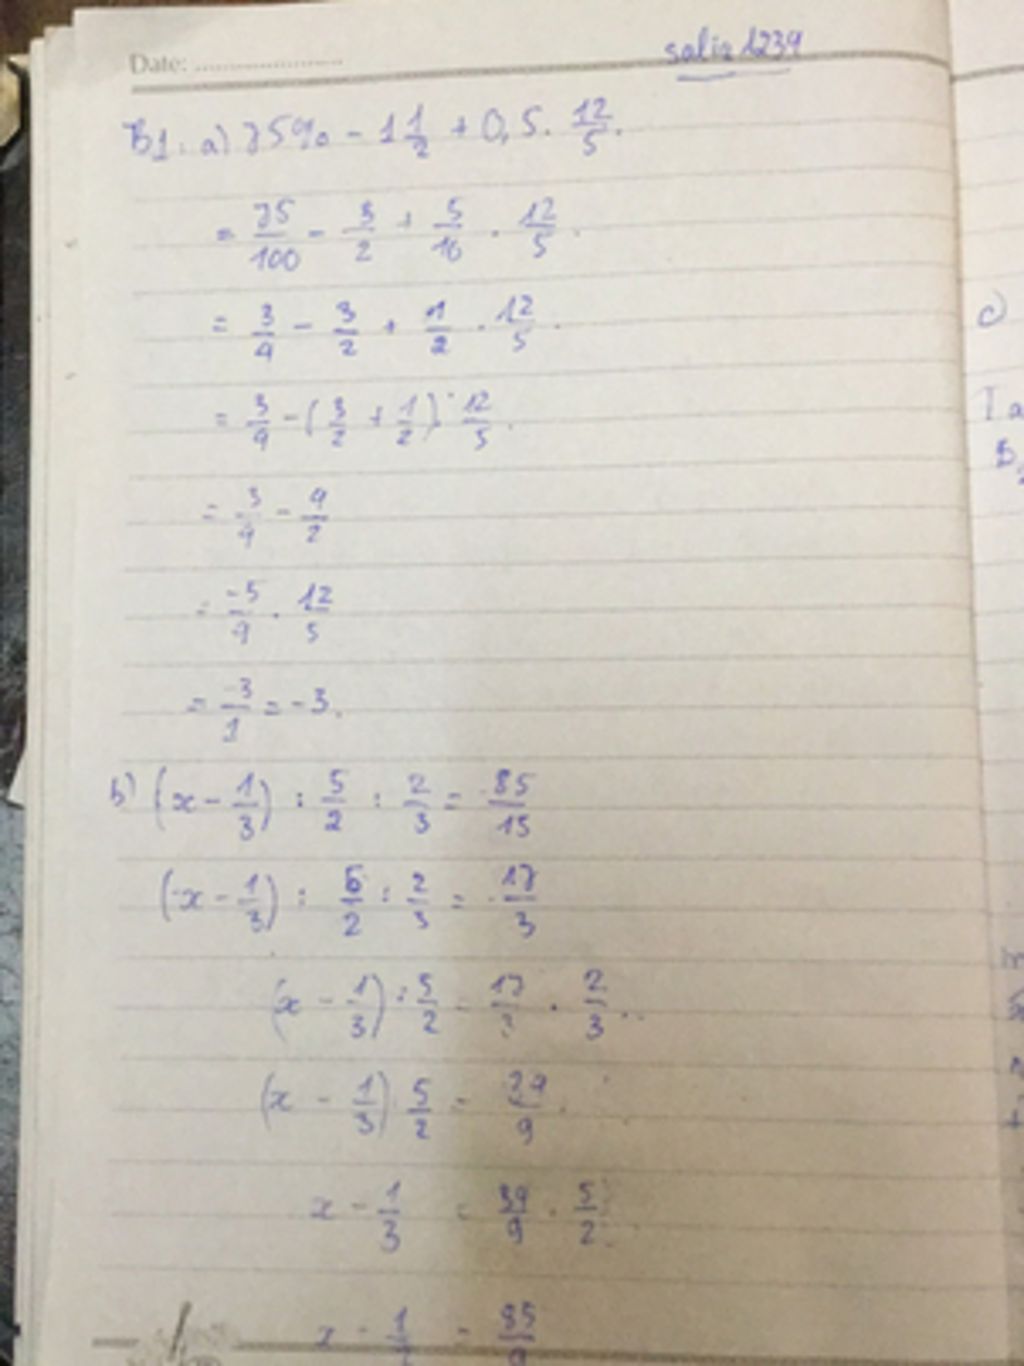 Date: ......................
salia 1239
B1. a) 75% - 1 1/2 + 0,5 . 12/5.
= 75/100 - 3/2 + 5/10 . 12/5.
= 3/4 - 3/2 + 1/2 . 12/5.
= 3/4 - (3/2 + 1/2) . 12/5.
= 3/4 - 4/2
= -5/4 . 12/5
= -3/1 = -3.
b) (x - 1/3) : 5/2 : 2/3 = 85/15
(x - 1/3) : 5/2 : 2/3 = 17/3
(x - 1/3) : 5/2 = 17/3 . 2/3.
(x - 1/3) 5/2 = 34/9
x - 1/3 = 34/9 . 5/2
x - 1 = 85/9
c)